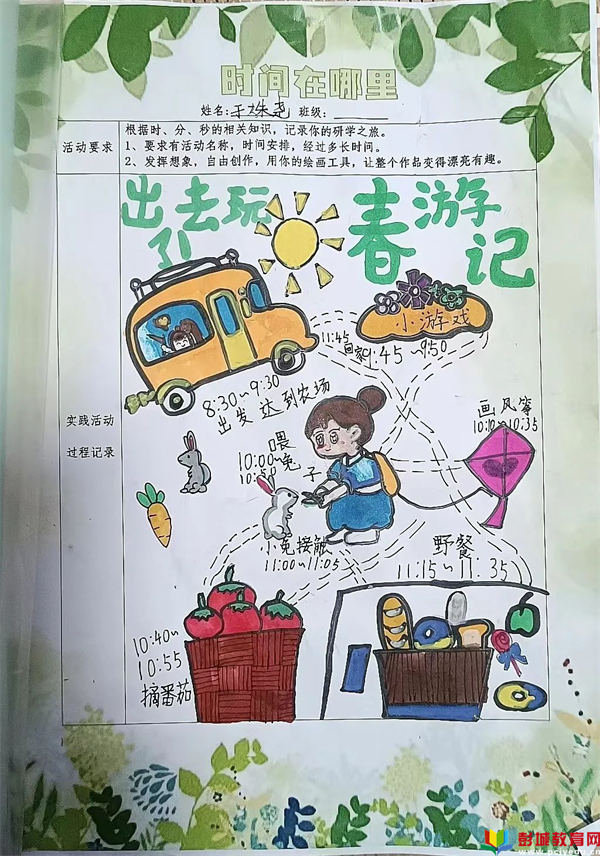 时间在哪里
姓名:于姝尧 班级:
活动要求
根据时、分、秒的相关知识，记录你的研学之旅。
1、要求有活动名称，时间安排，经过多长时间。
2、发挥想象，自由创作，用你的绘画工具，让整个作品变得漂亮有趣。
出去玩
了
春游
记
小游戏
11:45
回家
9:45~9:50
8:30~9:30
出发 达到农场
画风筝
10:10~10:35
实践活动
过程记录
喂
10:00~兔子
10:50
小兔接触
11:00~11:05
野餐
11:15~11:35
10:40~
10:55
摘番茄
彭城教育网